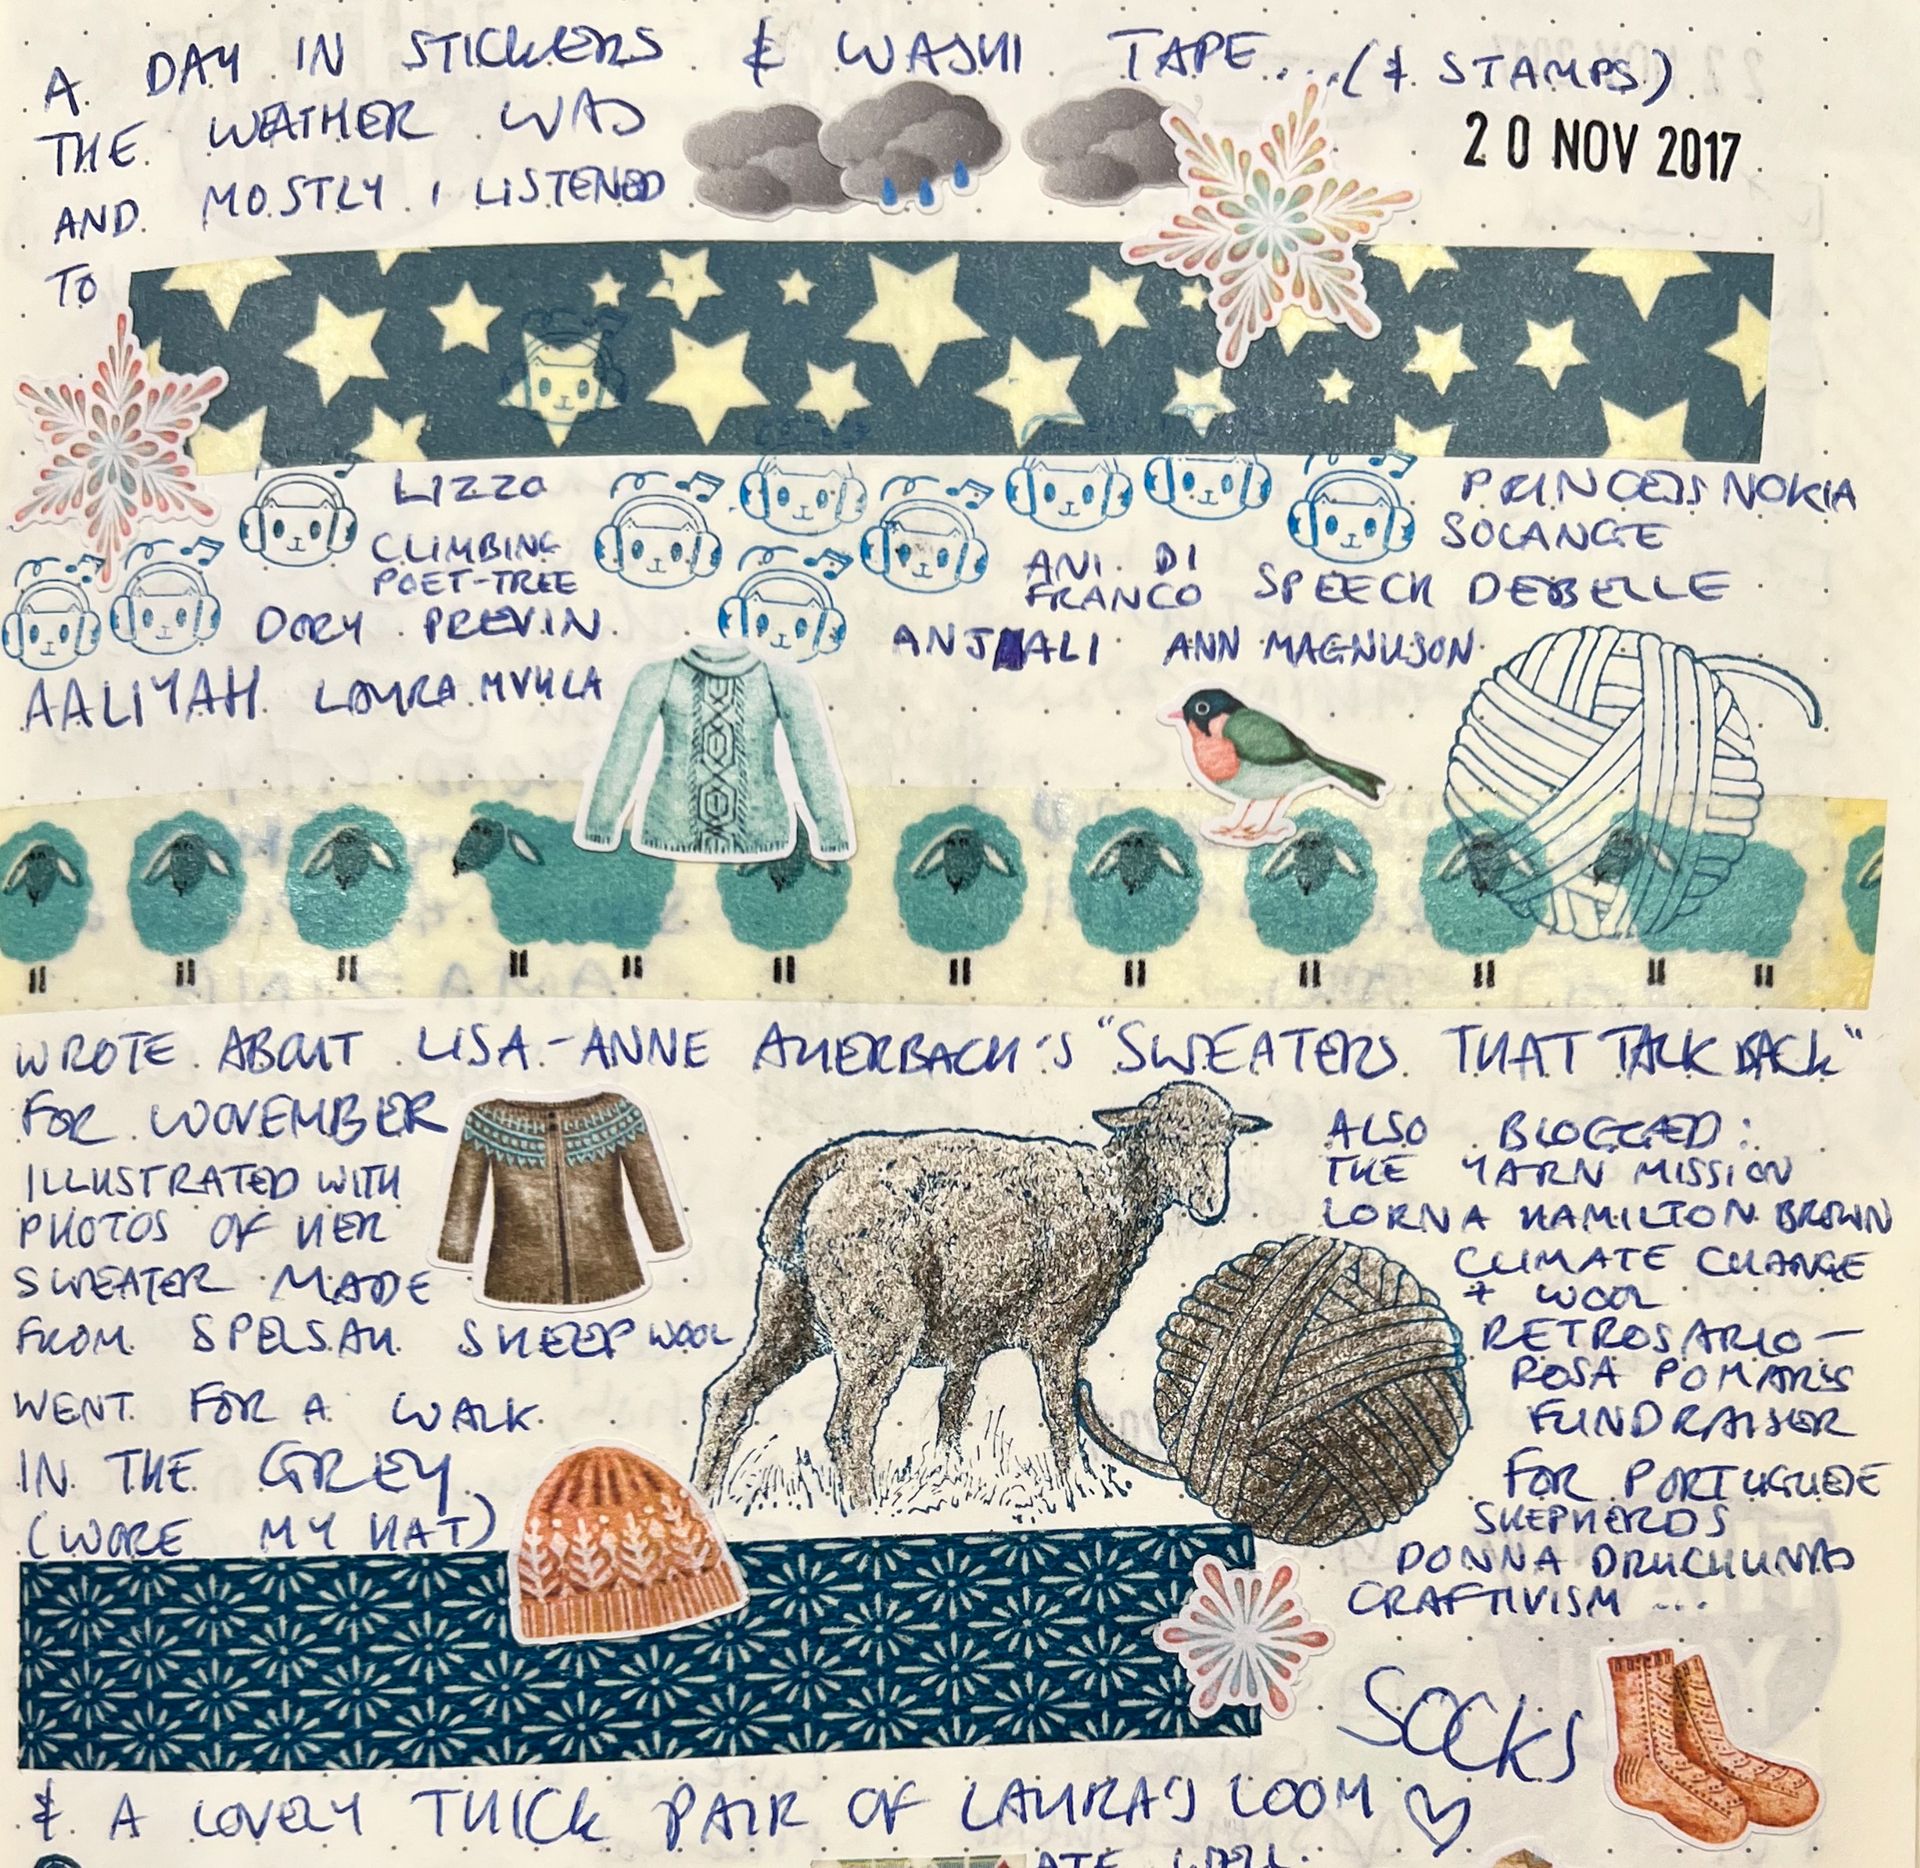 A DAY IN STICKERS & WASHI TAPE...(& STAMPS)
THE WEATHER WAS
20 NOV 2017
AND MOSTLY I LISTENED
TO
LIZZO
PRINCESS NOKIA
CLIMBING
POET-TREE
SOLANGE
ANI DI
FRANCO
SPEECH DEBELLE
DORY PREVIN
ANJALI
ANN MAGNUSON
AALIYAH LAURA MVULA
WROTE ABOUT LISA-ANNE AUERBACH'S "SWEATERS THAT TALK BACK"
FOR WOVEMBER
ILLUSTRATED WITH
PHOTOS OF HER
SWEATER MADE
FROM SPELSAU SHEEP WOOL
ALSO BLOGGED:
THE YARN MISSION
LORNA HAMILTON BROWN
CLIMATE CHANGE
+ WOOL
RETROSARIO-
ROSA POMAR'S
FUNDRAISER
FOR PORTUGUESE
SHEPHERDS
DONNA DRUCHUNAS
CRAFTIVISM ...
WENT FOR A WALK
IN THE GREY
(WORE MY HAT)
SOCKS
& A LOVELY THICK PAIR OF LAURA'S LOOM ♡
ATE WELL.